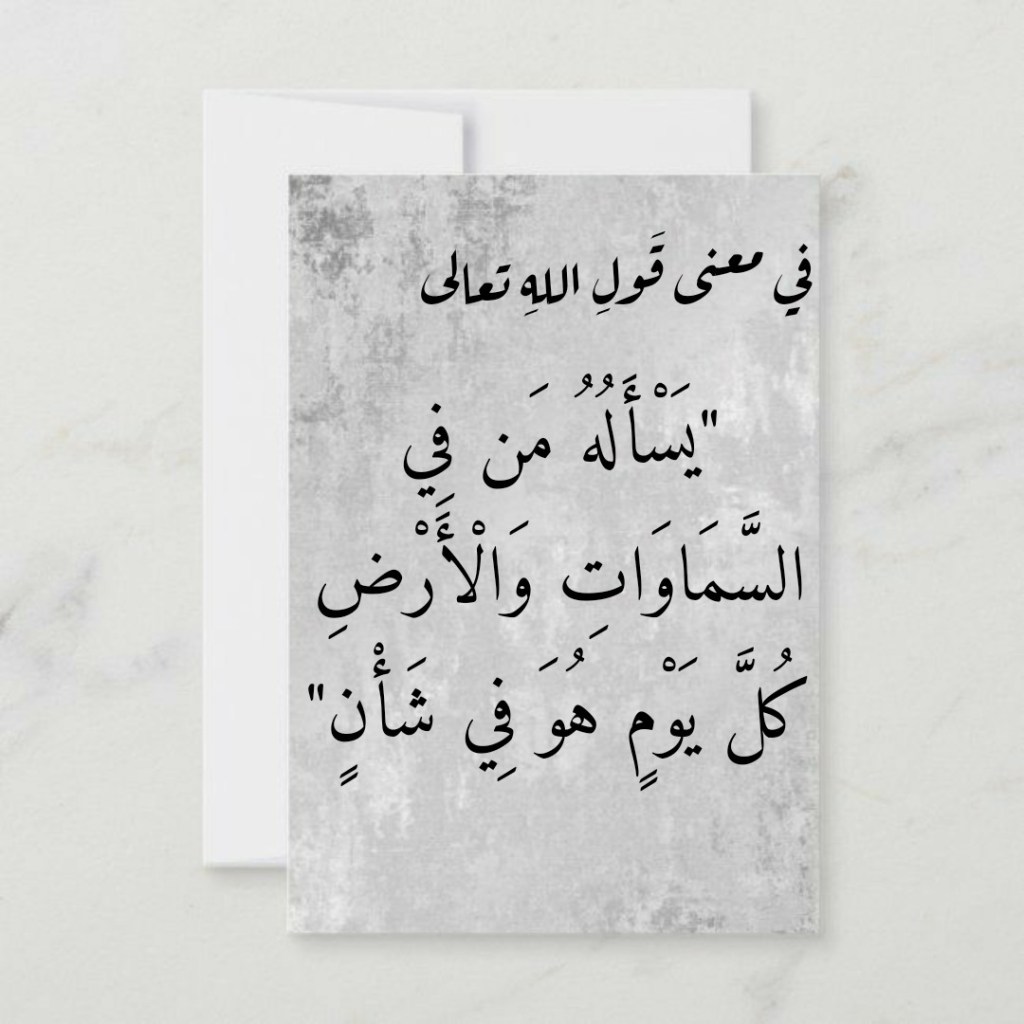 في معنى قَولِ اللهِ تعالى
"يَسْأَلُهُ مَن فِي
السَّمَاوَاتِ وَالْأَرْضِ
كُلَّ يَوْمٍ هُوَ فِي شَأْنٍ"